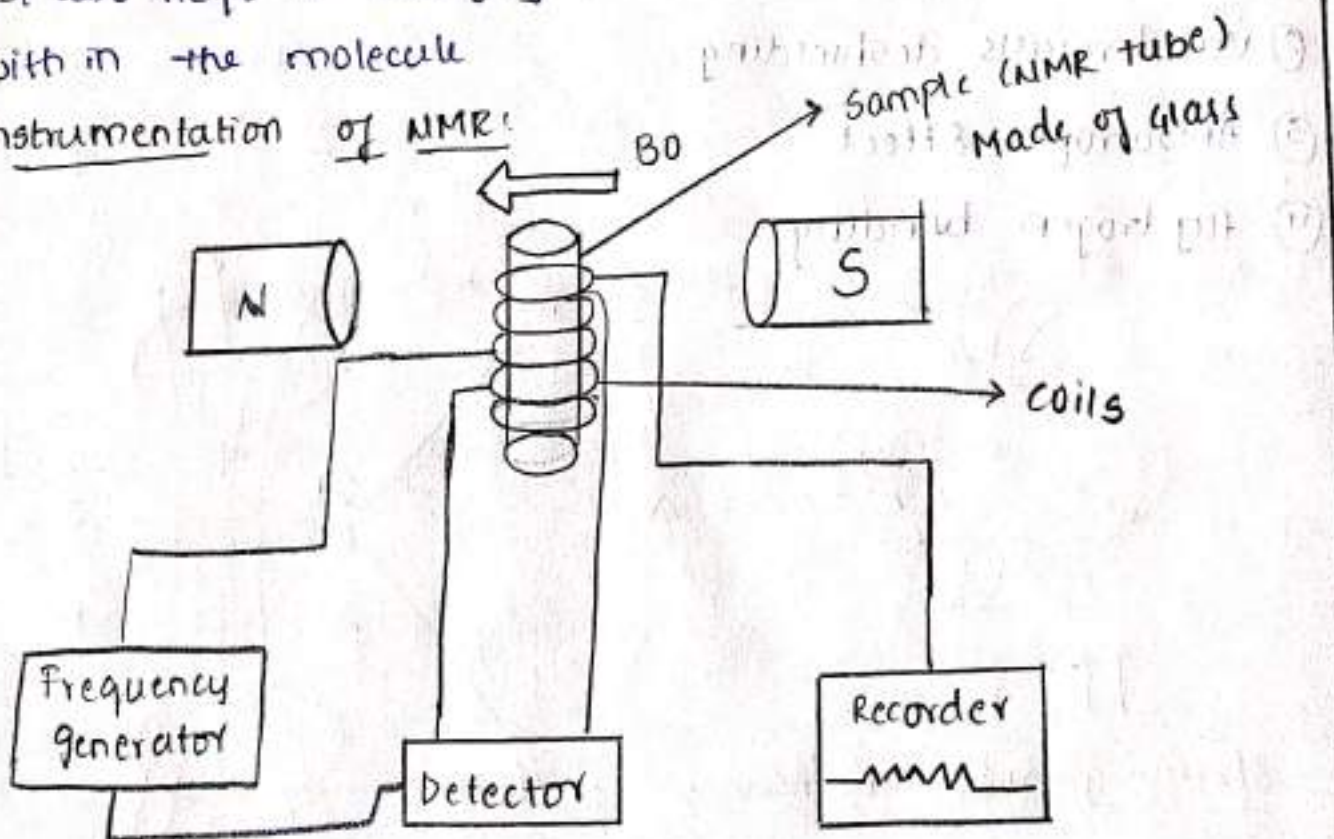 within the molecule
nstrumentation of NMR:
B0
Sample (NMR tube)
Made of Glass
N
S
coils
Frequency
generator
Detector
Recorder